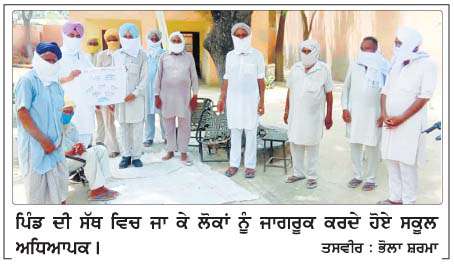 ਪਿੰਡ ਦੀ ਸੱਥ ਵਿਚ ਜਾ ਕੇ ਲੋਕਾਂ ਨੂੰ ਜਾਗਰੂਕ ਕਰਦੇ ਹੋਏ ਸਕੂਲ
ਅਧਿਆਪਕ। ਤਸਵੀਰ : ਭੋਲਾ ਸ਼ਰਮਾ